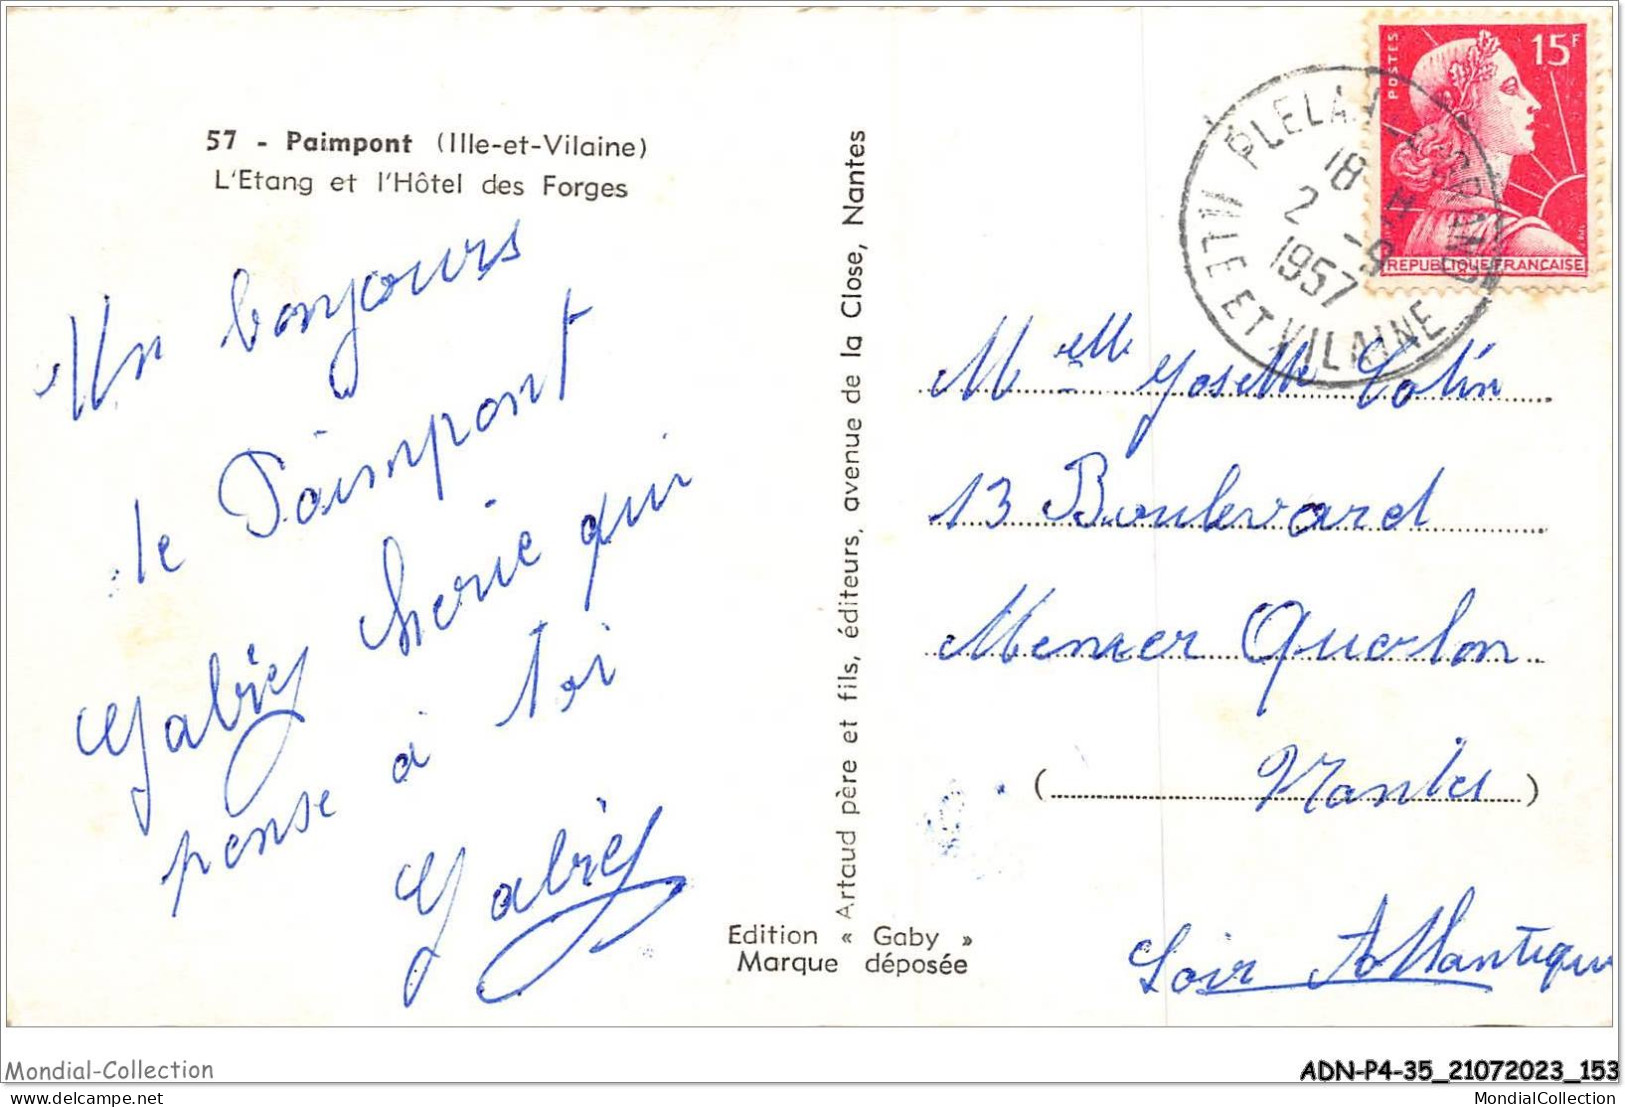 57 - Paimpont (Ille-et-Vilaine)
L'Etang et l'Hôtel des Forges
Un bonjours
de Paimpont
Gabriel cherie qui
pense à toi
Gabriel
Artaud père et fils, éditeurs, avenue de la Close, Nantes
Edition « Gaby »
Marque déposée
POSTES
15F
REPUBLIQUE FRANÇAISE
18 H
2 -9
1957
ILLE ET VILAINE
Melle Josette Colin
13 Boulevard
Nantes
Loir Atlantique
Mondial-Collection
ADN-P4-35_21072023_153
delcampe.net
MondialCollection